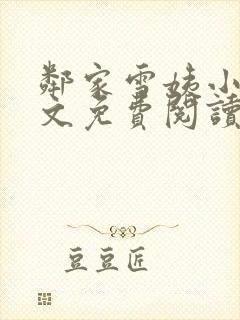 鄰家雪姨小
文免費閱讀
豆豆匠